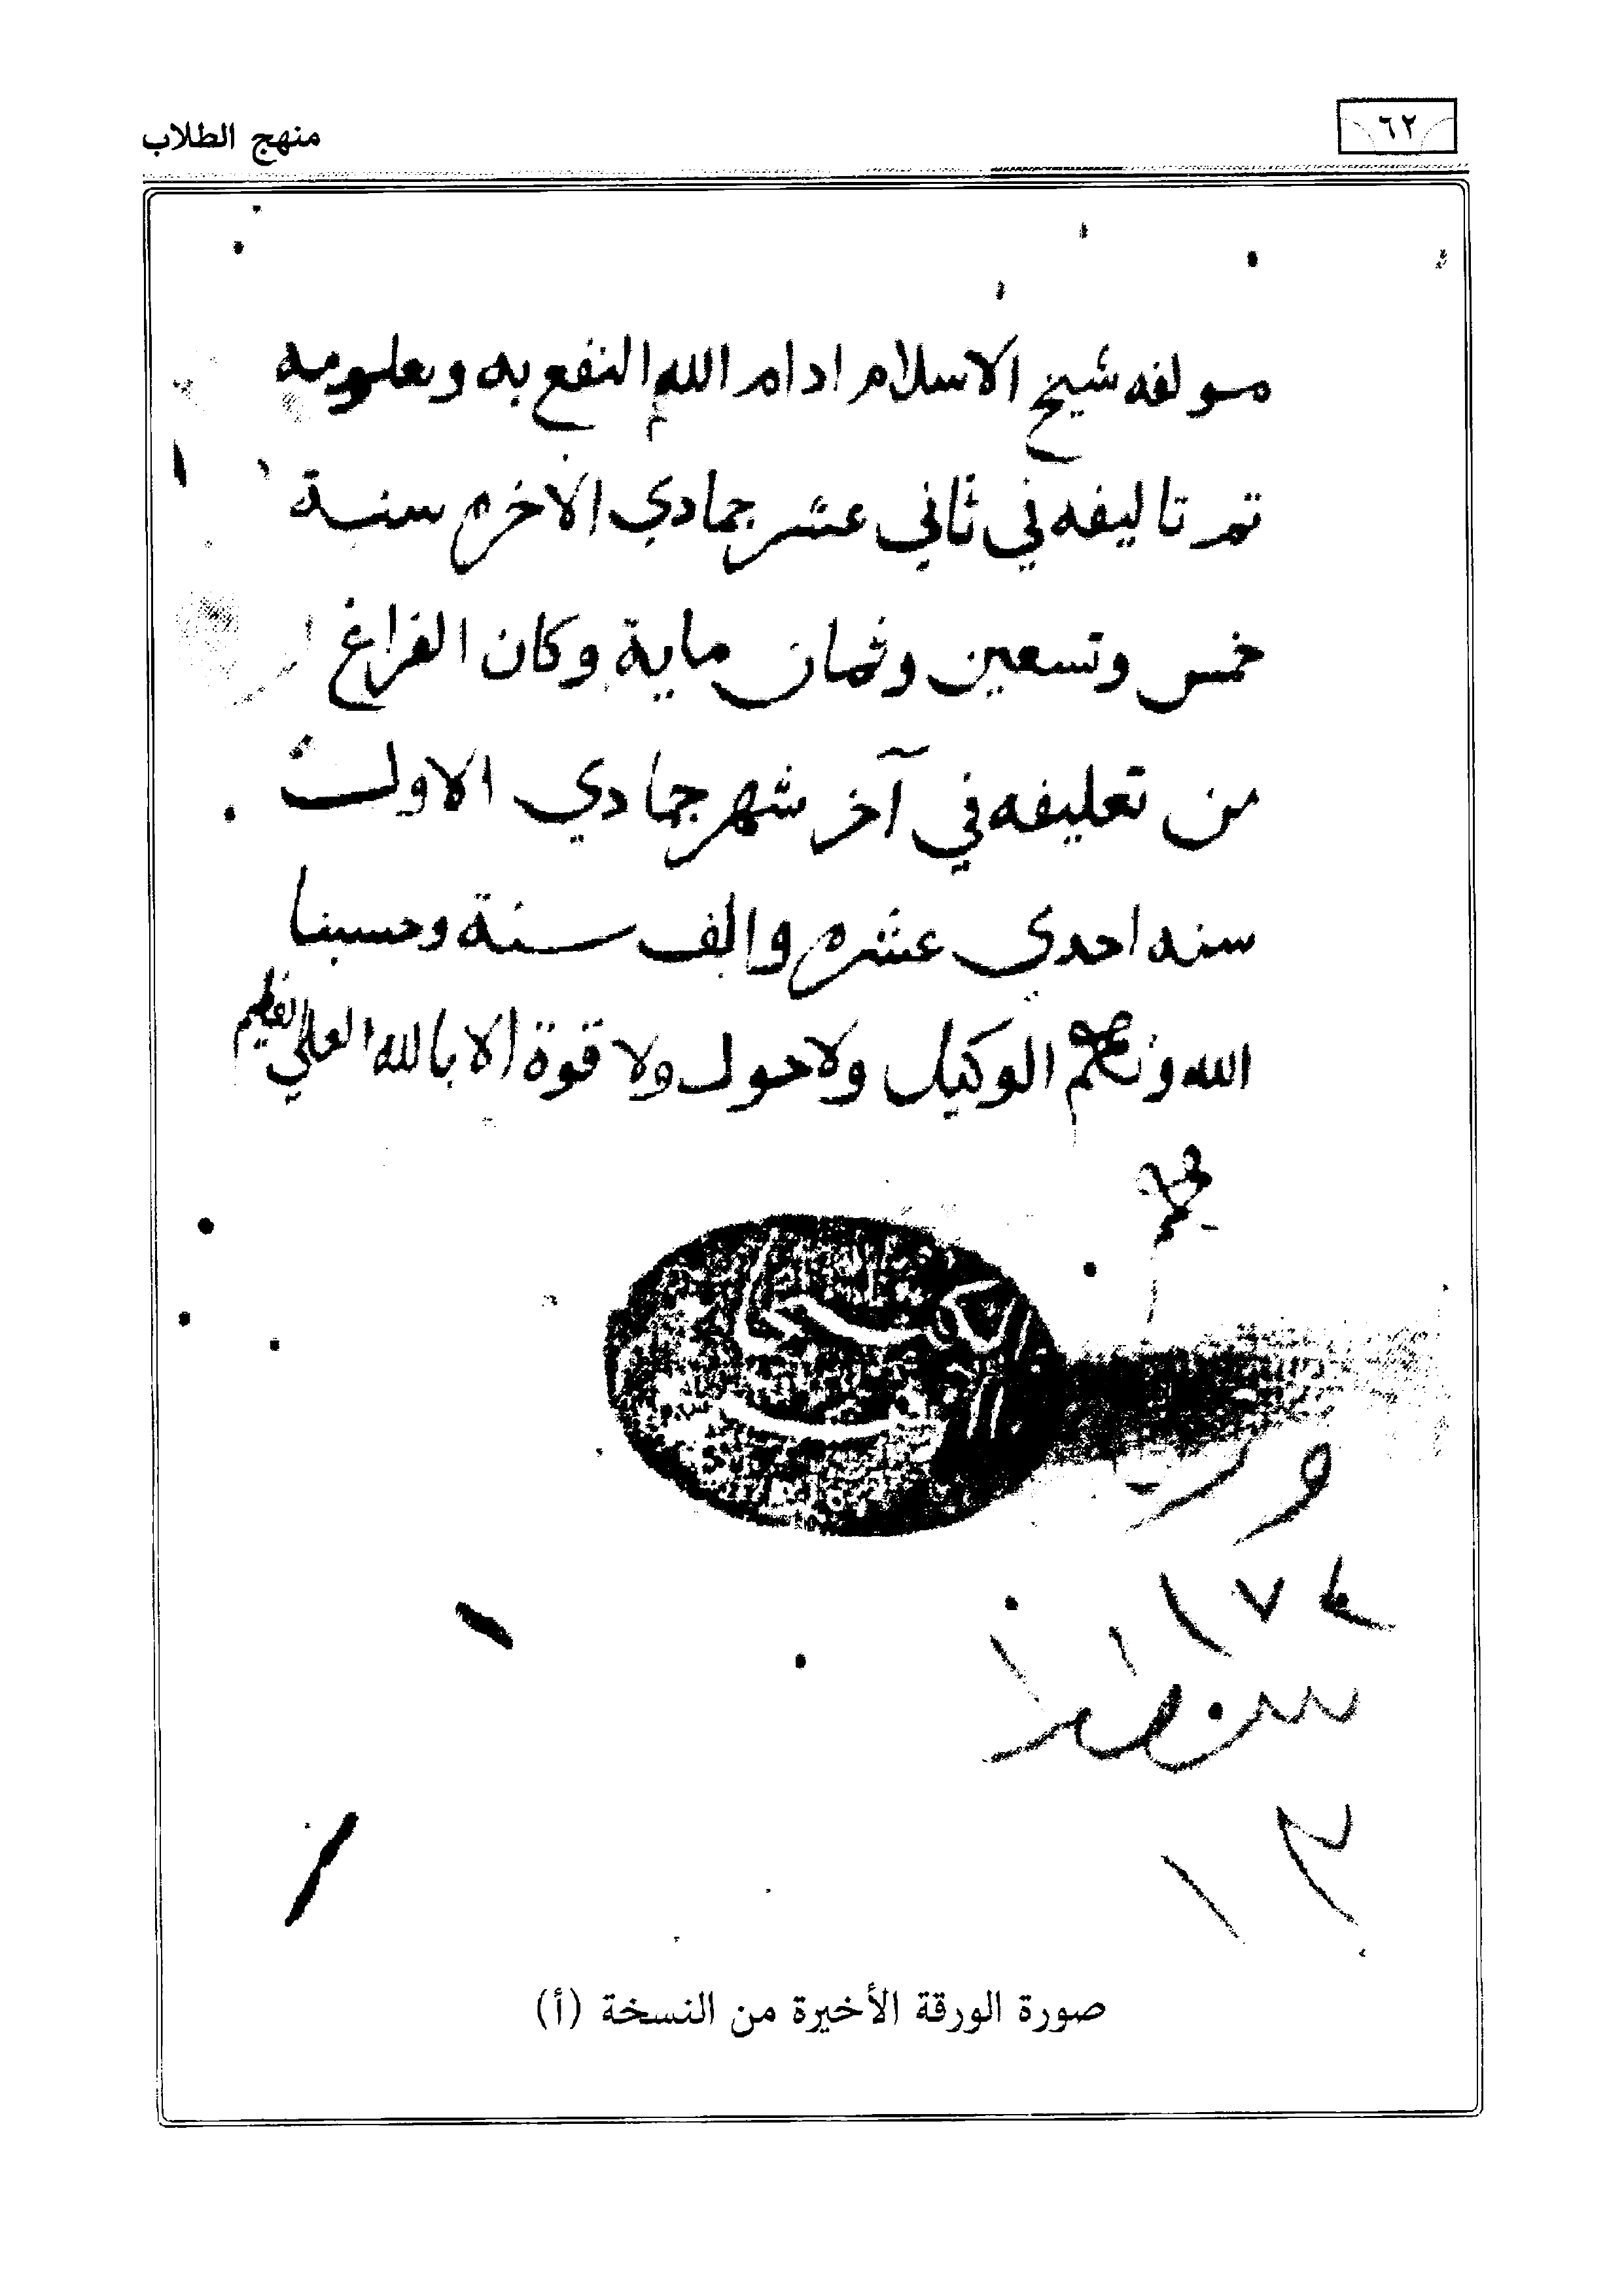 ٦٢
منهج الطلاب
مولفه شيخ الاسلام ادام الله النفع به وبعلومه
تم تاليفه في ثاني عشر جمادي الاخره سنة
خمس وتسعين وثمان ماية وكان الفراغ
من تعليفه في آخر شهر جمادي الاولى
سنه احدي عشره والف سنة وحسبنا
الله ونعم الوكيل ولا حول ولا قوة الا بالله العلي العظيم
ورق
١٧٤
١٢
صورة الورقة الأخيرة من النسخة (أ)